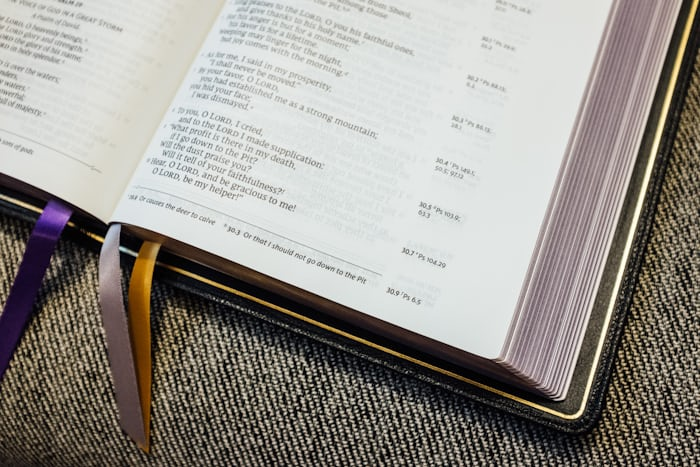 VOICE OF GOD IN A GREAT STORM
A Psalm of David.
LORD, O heavenly beings,
LORD glory and strength.
LORD the glory of his name;
LORD in holy splendor.
is over the waters;
thunders,
waters.
powerful;
full of majesty.
sons of gods
from Sheol,
among those
praises to the LORD, O you his faithful ones,
and give thanks to his holy name.
For his anger is but for a moment;
his favor is for a lifetime.
Weeping may linger for the night,
but joy comes with the morning.
As for me, I said in my prosperity,
"I shall never be moved."
By your favor, O LORD,
you had established me as a strong mountain;
you hid your face;
I was dismayed.
To you, O LORD, I cried,
and to the LORD I made supplication:
"What profit is there in my death,
if I go down to the Pit?
Will the dust praise you?
Will it tell of your faithfulness?
Hear, O LORD, and be gracious to me!
O LORD, be my helper!"
Or causes the deer to calve 30.3 Or that I should not go down to the Pit
30.4 Ps 149.1;
50.5; 97.12
30.5 Ps 103.9;
63.3
30.7 Ps 104.29
30.9 Ps 6.5